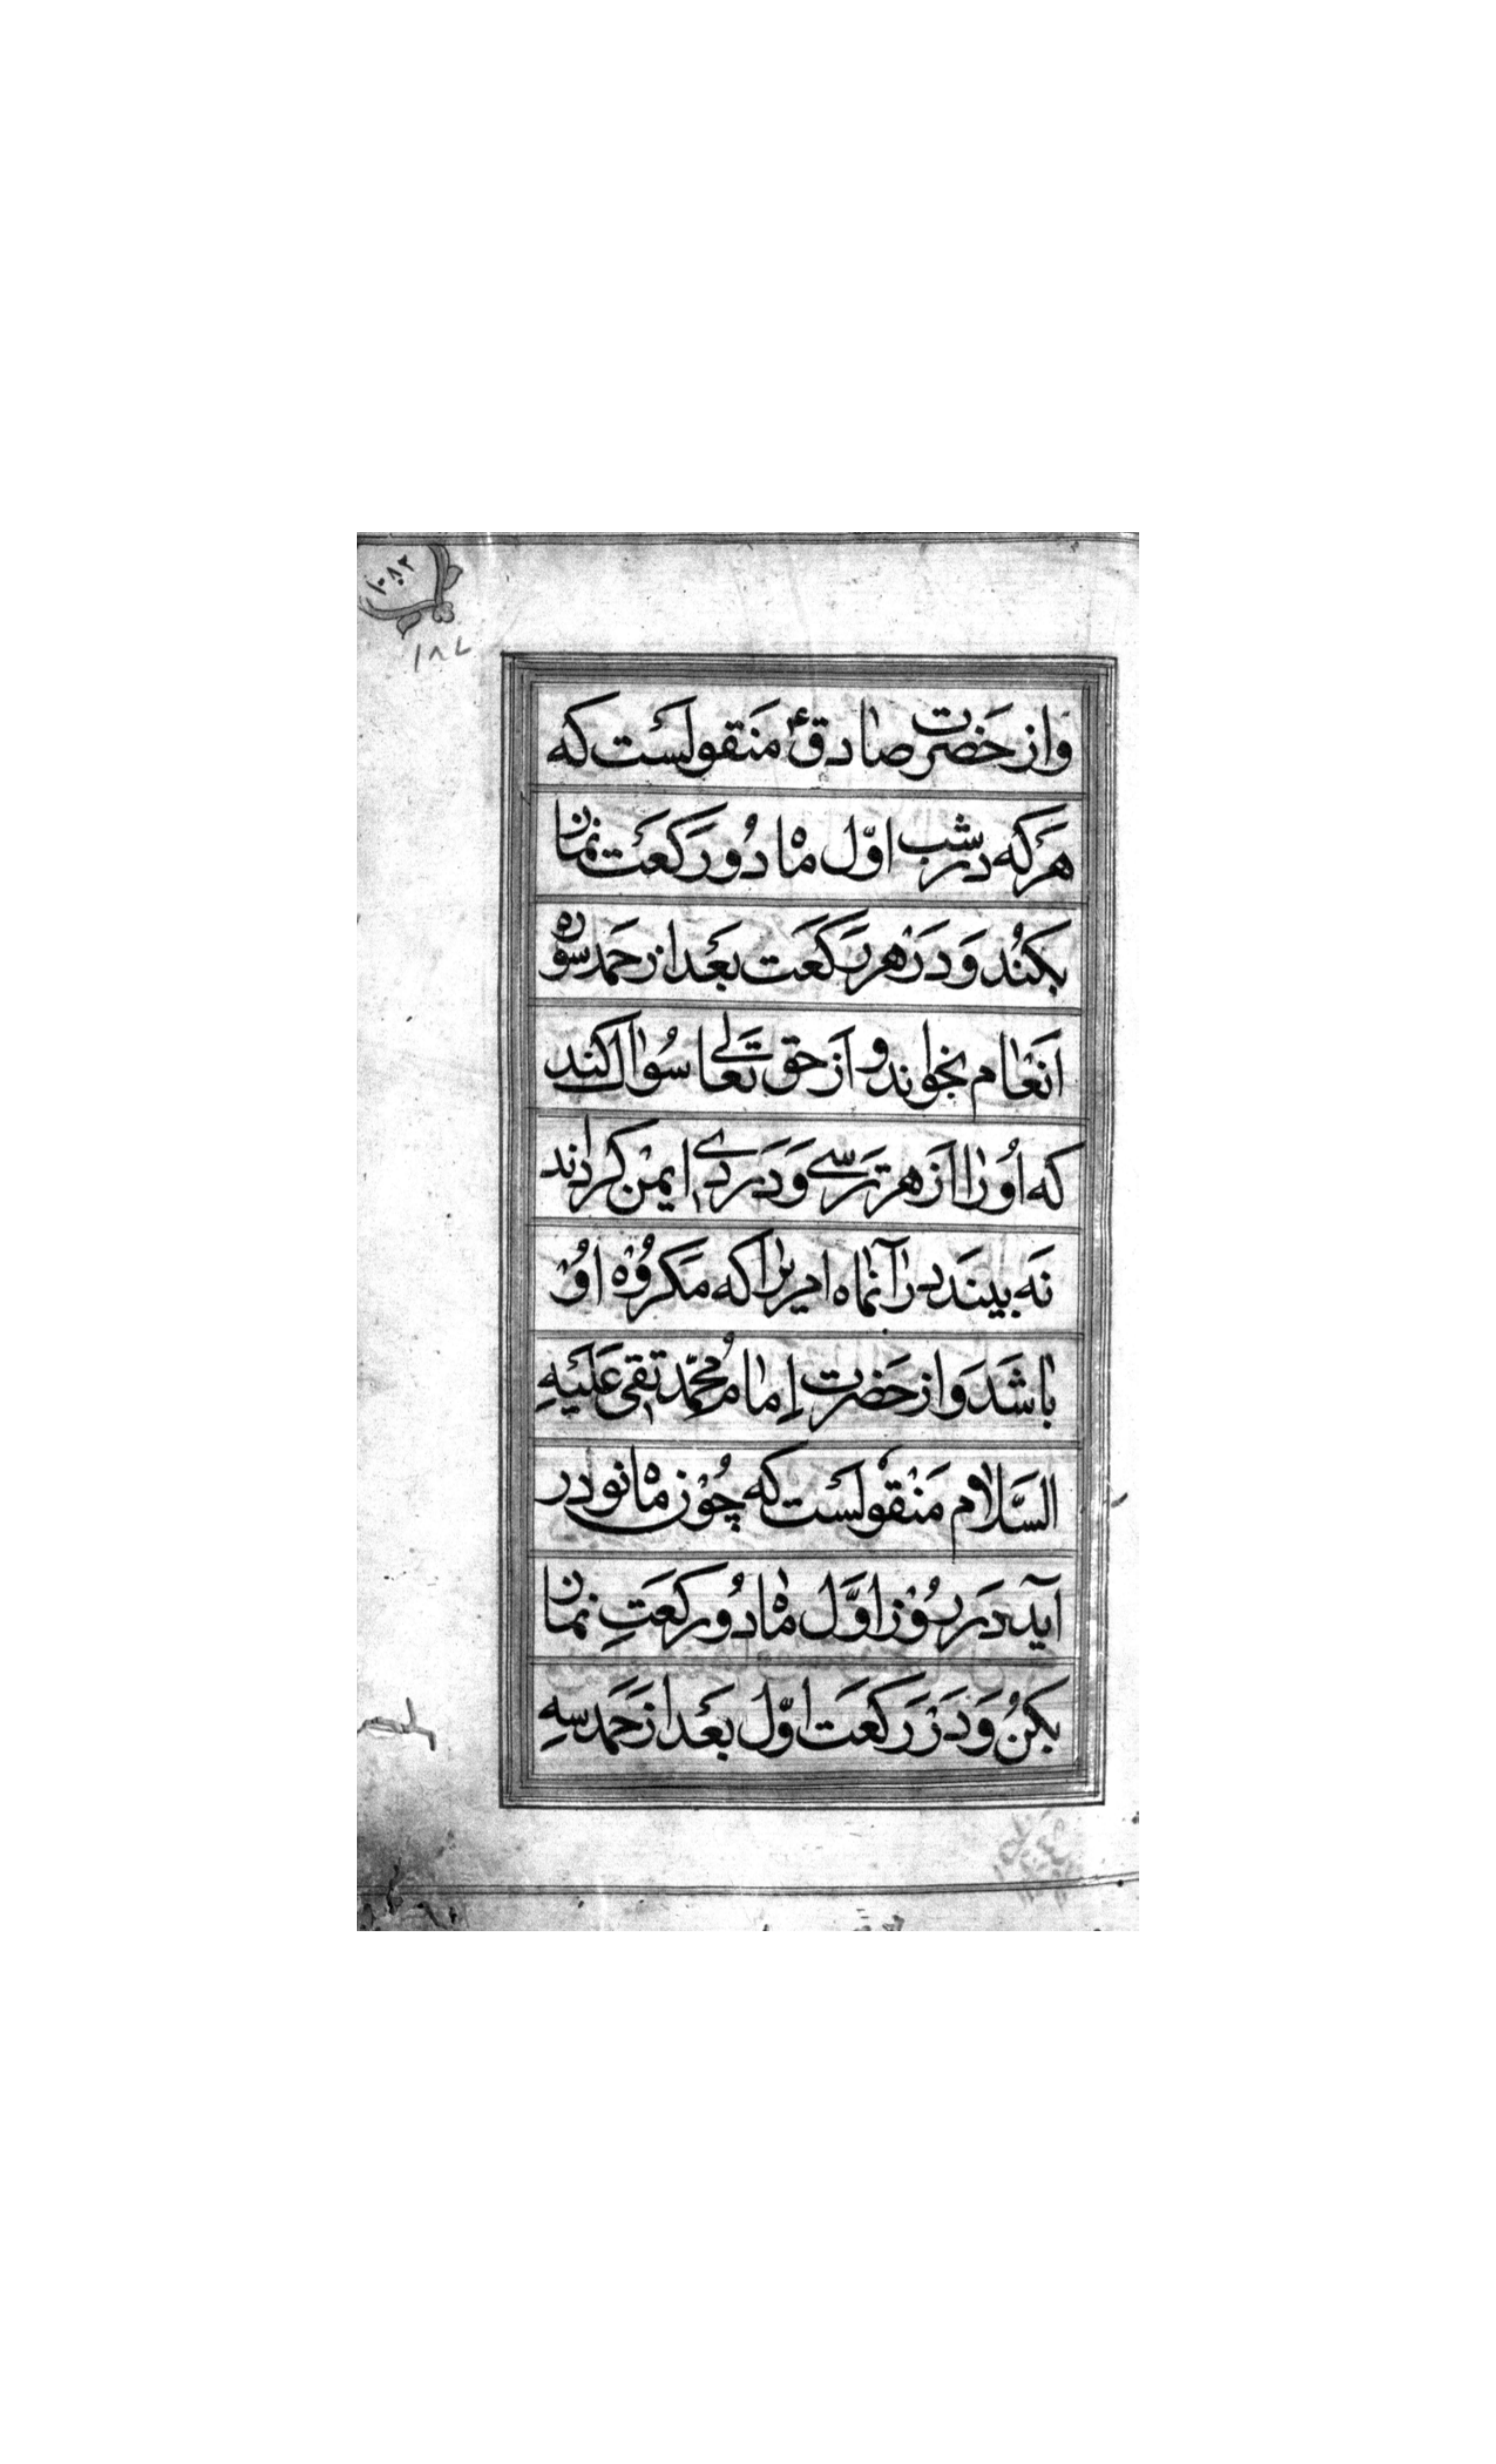 ۱۰۸۲
۱۸۷
واز حَضرت صادقؑ مَنقولَست که
هَرکه درشب اوّل ماه دُو رَکعَت نماز
بکنُد وَدَرْهر رَکعَت بعَداز حَمد سوره
اَنعام بخواند و اَز حق تَعالی سُوال کند
که اُو را از هر تَرسے وَدَردے ایمنْ کرداند
نَه بیند در آنماه امریرا که مَکروُه اوُ
باشَد وَاز حَضرت اِمام مُحمّد تقی عَلَیهِ
السَّلام مَنقولَست که چُوْن ماه نو در
آید دَر رُوْز اوَّل ماه دُو رکعَتِ نماز
بکنُ وَدَرْ رَکعَت اوّل بعَداز حَمد سهِ